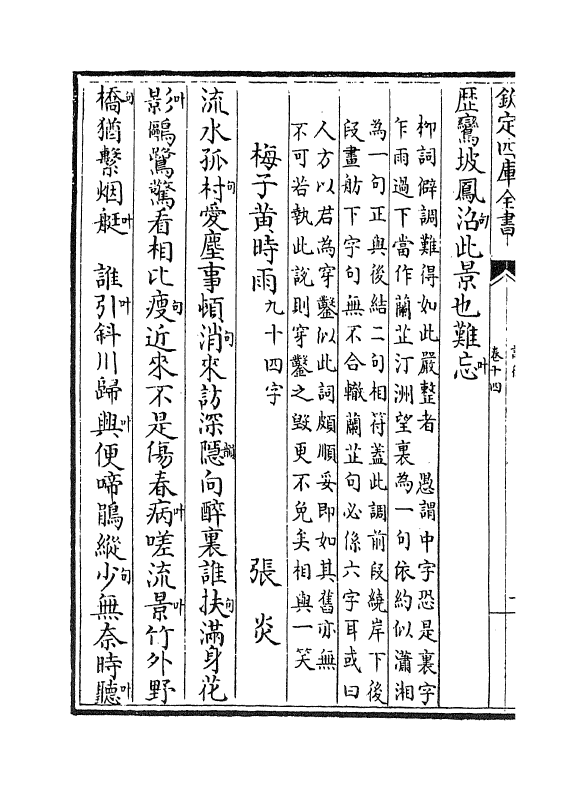 欽定四庫全書
卷十四
歴鸞坡鳳沼句此景也難忘叶
柳詞僻調難得如此嚴整者　愚謂中字恐是裏字
乍雨過下當作蘭芷汀洲望裏為一句依約似瀟湘
為一句正與後結二句相符蓋此調前段繞岸下後
段畫舫下字句無不合轍蘭芷句必係六字耳或曰
人方以君為穿鑿似此詞頗順妥即如其舊亦無
不可若執此說則穿鑿之毀更不免矣相與一笑
梅子黄時雨九十四字　張炎
流水孤村句愛塵事頓消句來訪深隱韻向醉裏誰扶句滿身花
影叶鷗鷺驚看相比瘦句近來不是傷春病叶嗟流景叶竹外野
橋句猶繫烟艇叶　誰引叶斜川歸興叶便啼鵑縱少句無奈時聽叶